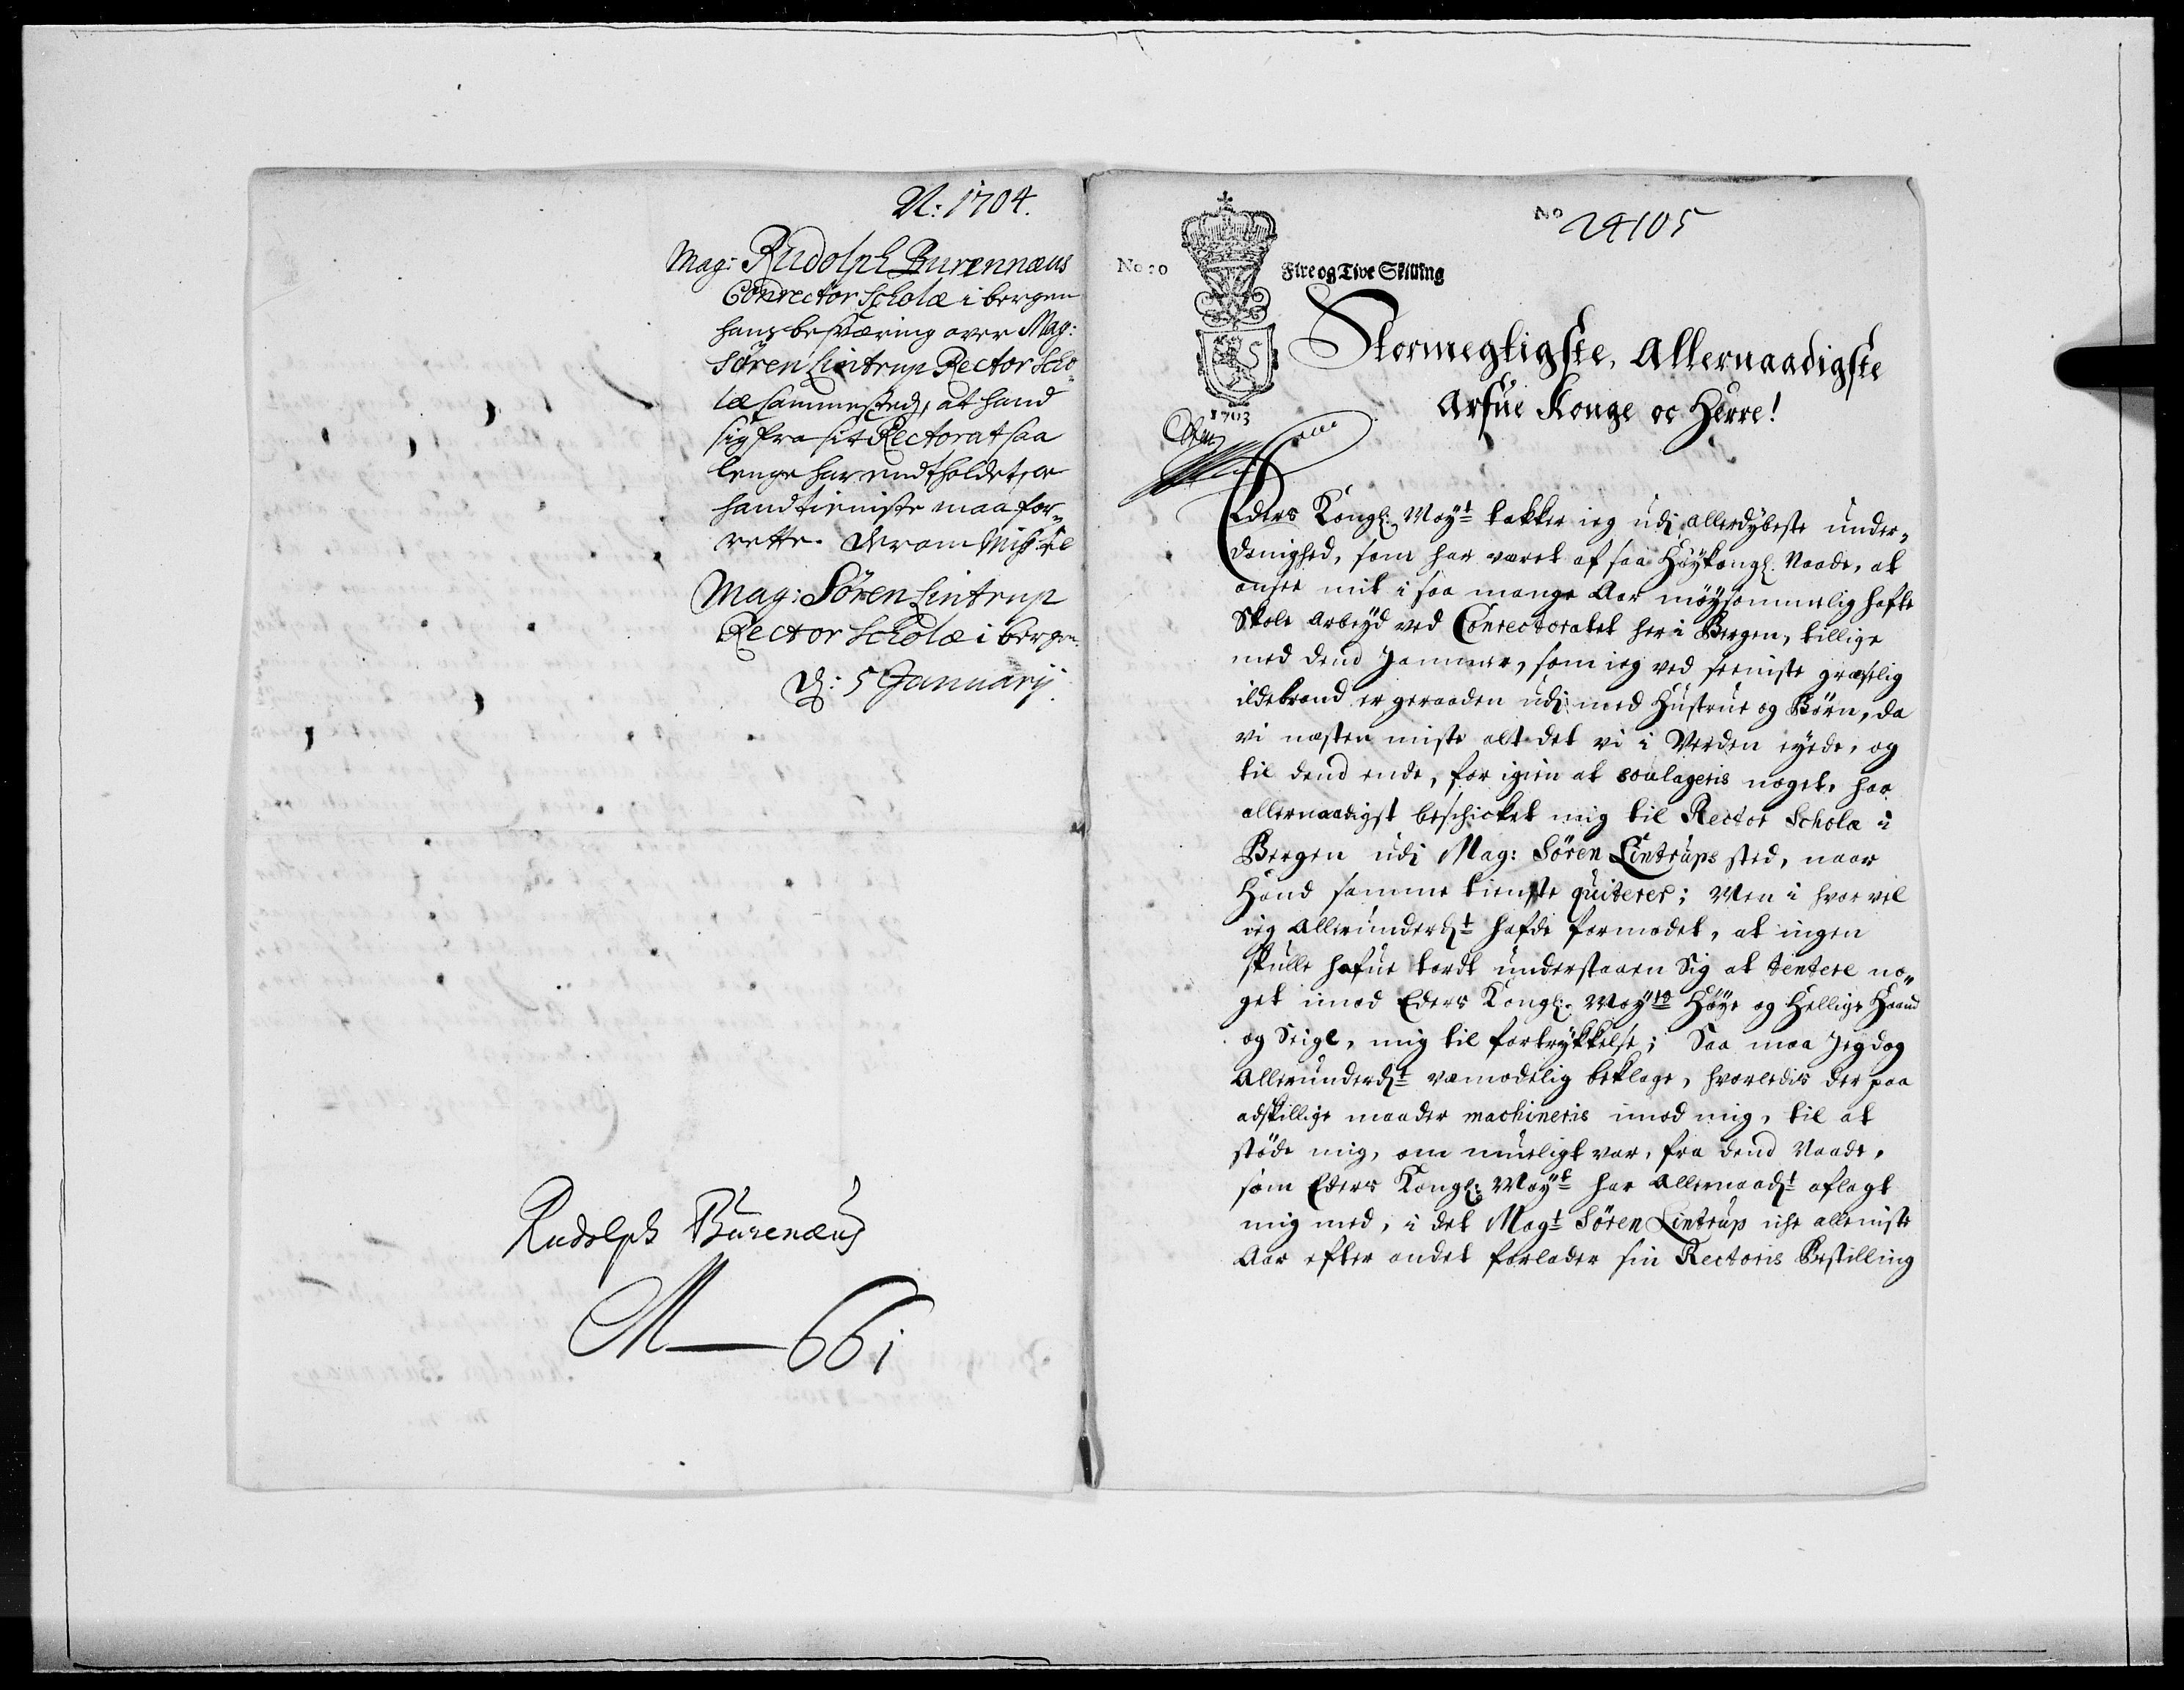 N: 1704.
Mag: Rudolph Burennæus
Conrector Scholæ i bergen
hans besværing over Mag:
Sören Lintrup Rector Scho-
læ sammested, at hand
sig fra sit Rectorat saa
lenge har endtholdet, oc
hand tieniste maa for-
rette. Derom Miss: til
Mag: Sören Lintrup
Rector Scholæ i bergen.
d: 5 Januarij.
Rudolph Burenæus
M—661
No 24105
No 20
Fire og Tive Skilling
1703
Stormegtigste, Allernaadigste
Arfue Konge oc Herre!
Eders Kongl: Mayt takker ieg udj allerdybeste under-
danighed, som har været af saa Høykongl. Naade, at
ansee mit i saa mange Aar møysommelig hafte
Skole arbeyd ved Conrectoratet her i Bergen, tillige
med dend Jammer, som ieg ved seeniste græselig
ildebrand er geraaden udj med Hustrue og Børn, da
vi næsten miste alt det vi i Verden eyede, og
til dend ende, for igien at soulageris noget, har
allernaadigst beschicket mig til Rector Schola i
Bergen udj Mag: Sören Lintrups sted, naar
Hand samme tieniste quiterer; Men i hvor vel
ieg allerunderdt hafde formodet, at ingen
skulle hafue tordt understaaen Sig at tentere no-
get imod Eders Kongl: Mayts Høye og Hellige Haand
og Seigl, mig til fortrykkelse; Saa maa Jeg dog
Allerunderdt vemodelig beklage, hvorledis der paa
adskillige maader machineris imod mig, til at
støde mig, om mueligt var, fra dend Naade,
som Eders Kongl: Mayt har allernaadt aflagt
mig med, i det Magt Sören Lintrup iche alleniste
Aar efter andet forlader sin Rectoris Bestilling